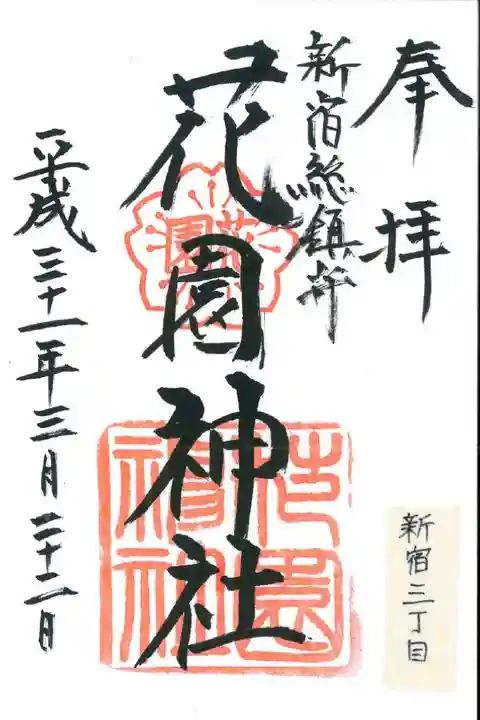 奉拝
新宿総鎮守
花園神社
平成三十一年三月二十二日
新宿三丁目
花園
花園神社